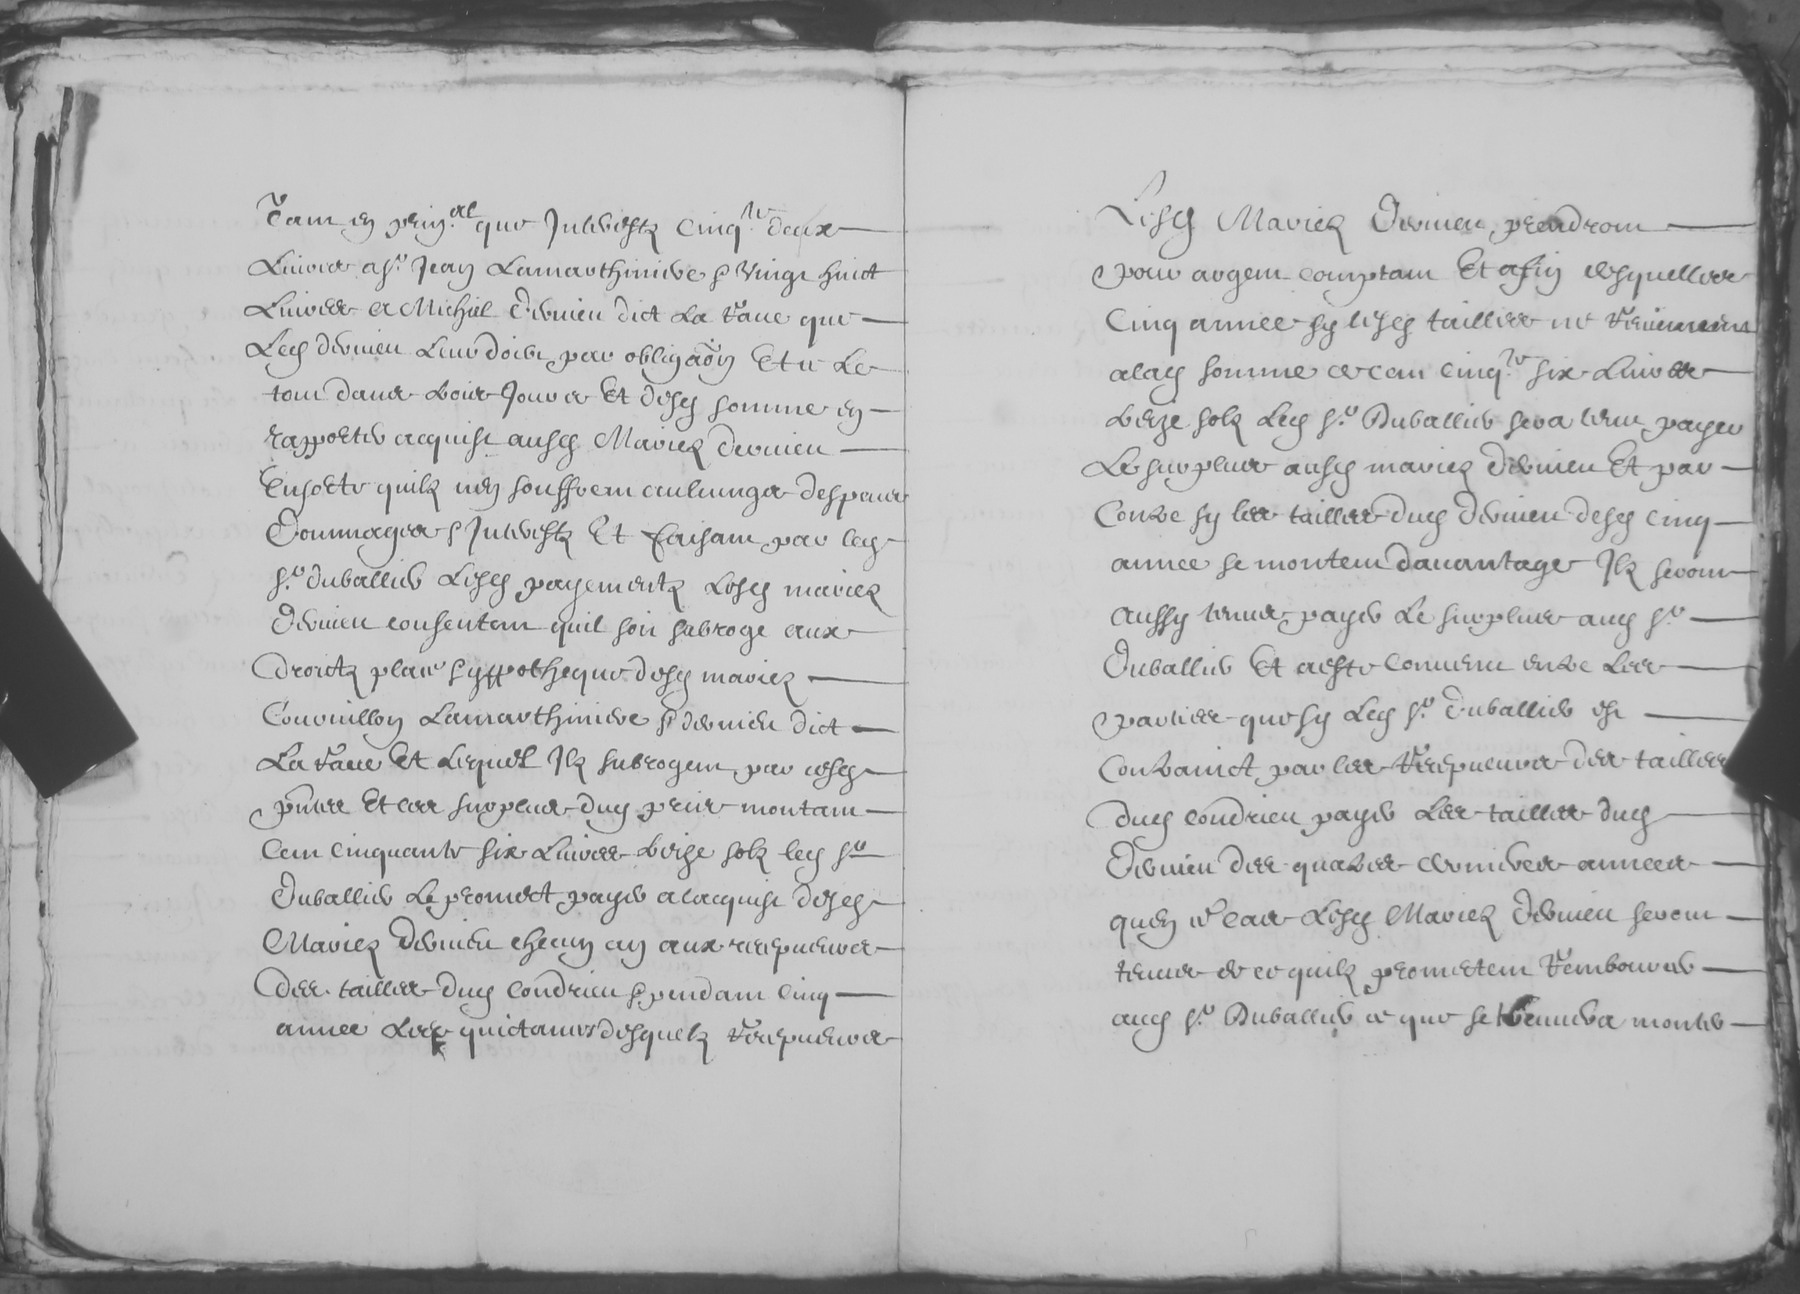 Tant en prin.al que Interestz cinq.te deux
Livres a s.r Jean Lamarthiniere & vingt huict
Livres a Michiel Dervieu dict La Caue que
Led Dervieu leur doibt par obligãon Et ce Le
tout dans trois Jours Et desd somme en
rapporter acquist ausd Mariez Dervieu
Ensorte quilz nen souffrent aulcungs despans
Dommages & Interestz Et faisant par led
s.r Duballier Lesd payements Lesd mariez
Dervieu consentent quil soit subroge aux
droictz place hyppotheque desd mariez
Couruillon Lamarthiniere & Dervieu dict
La Caue Et Lequel Ilz subrogent par cesd
pntes Et les surplus dud prix montant
Cent cinquante six Livres treize solz led s.r
Duballier Le promect payer a lacquist desd
Mariez Dervieu checun an aux recepueurs
Des tailles dud Condrieu & pendant cinq
annee Les quictances desquelz recepueurs
Lesd Mariez Dervieu prendront
pour argent comptant Et a fin desquelles
Cinq annee sy lesd tailles ne reviennent
a lad somme de cent cinq.te six Livres
treize solz Led s.r Duballier sera tenu payer
Le surplus ausd mariez Dervieu Et par
Contre sy les tailles dud Dervieu desd cinq
annee se montent davantage Ilz seront
aussy tenus payer Le surplus aud s.r
Duballier Et a este convenu entre Les
parties que sy Led s.r Duballier est
Contrainct par les recepueurs des tailles
dud Condrieu payer Les tailles dud
Dervieu des quatres dernieres annees
quen ce cas Lesd Mariez Dervieu seront
tenus et ce quilz promettent rembourcer
aud s.r Duballier ce que se treuuera monter